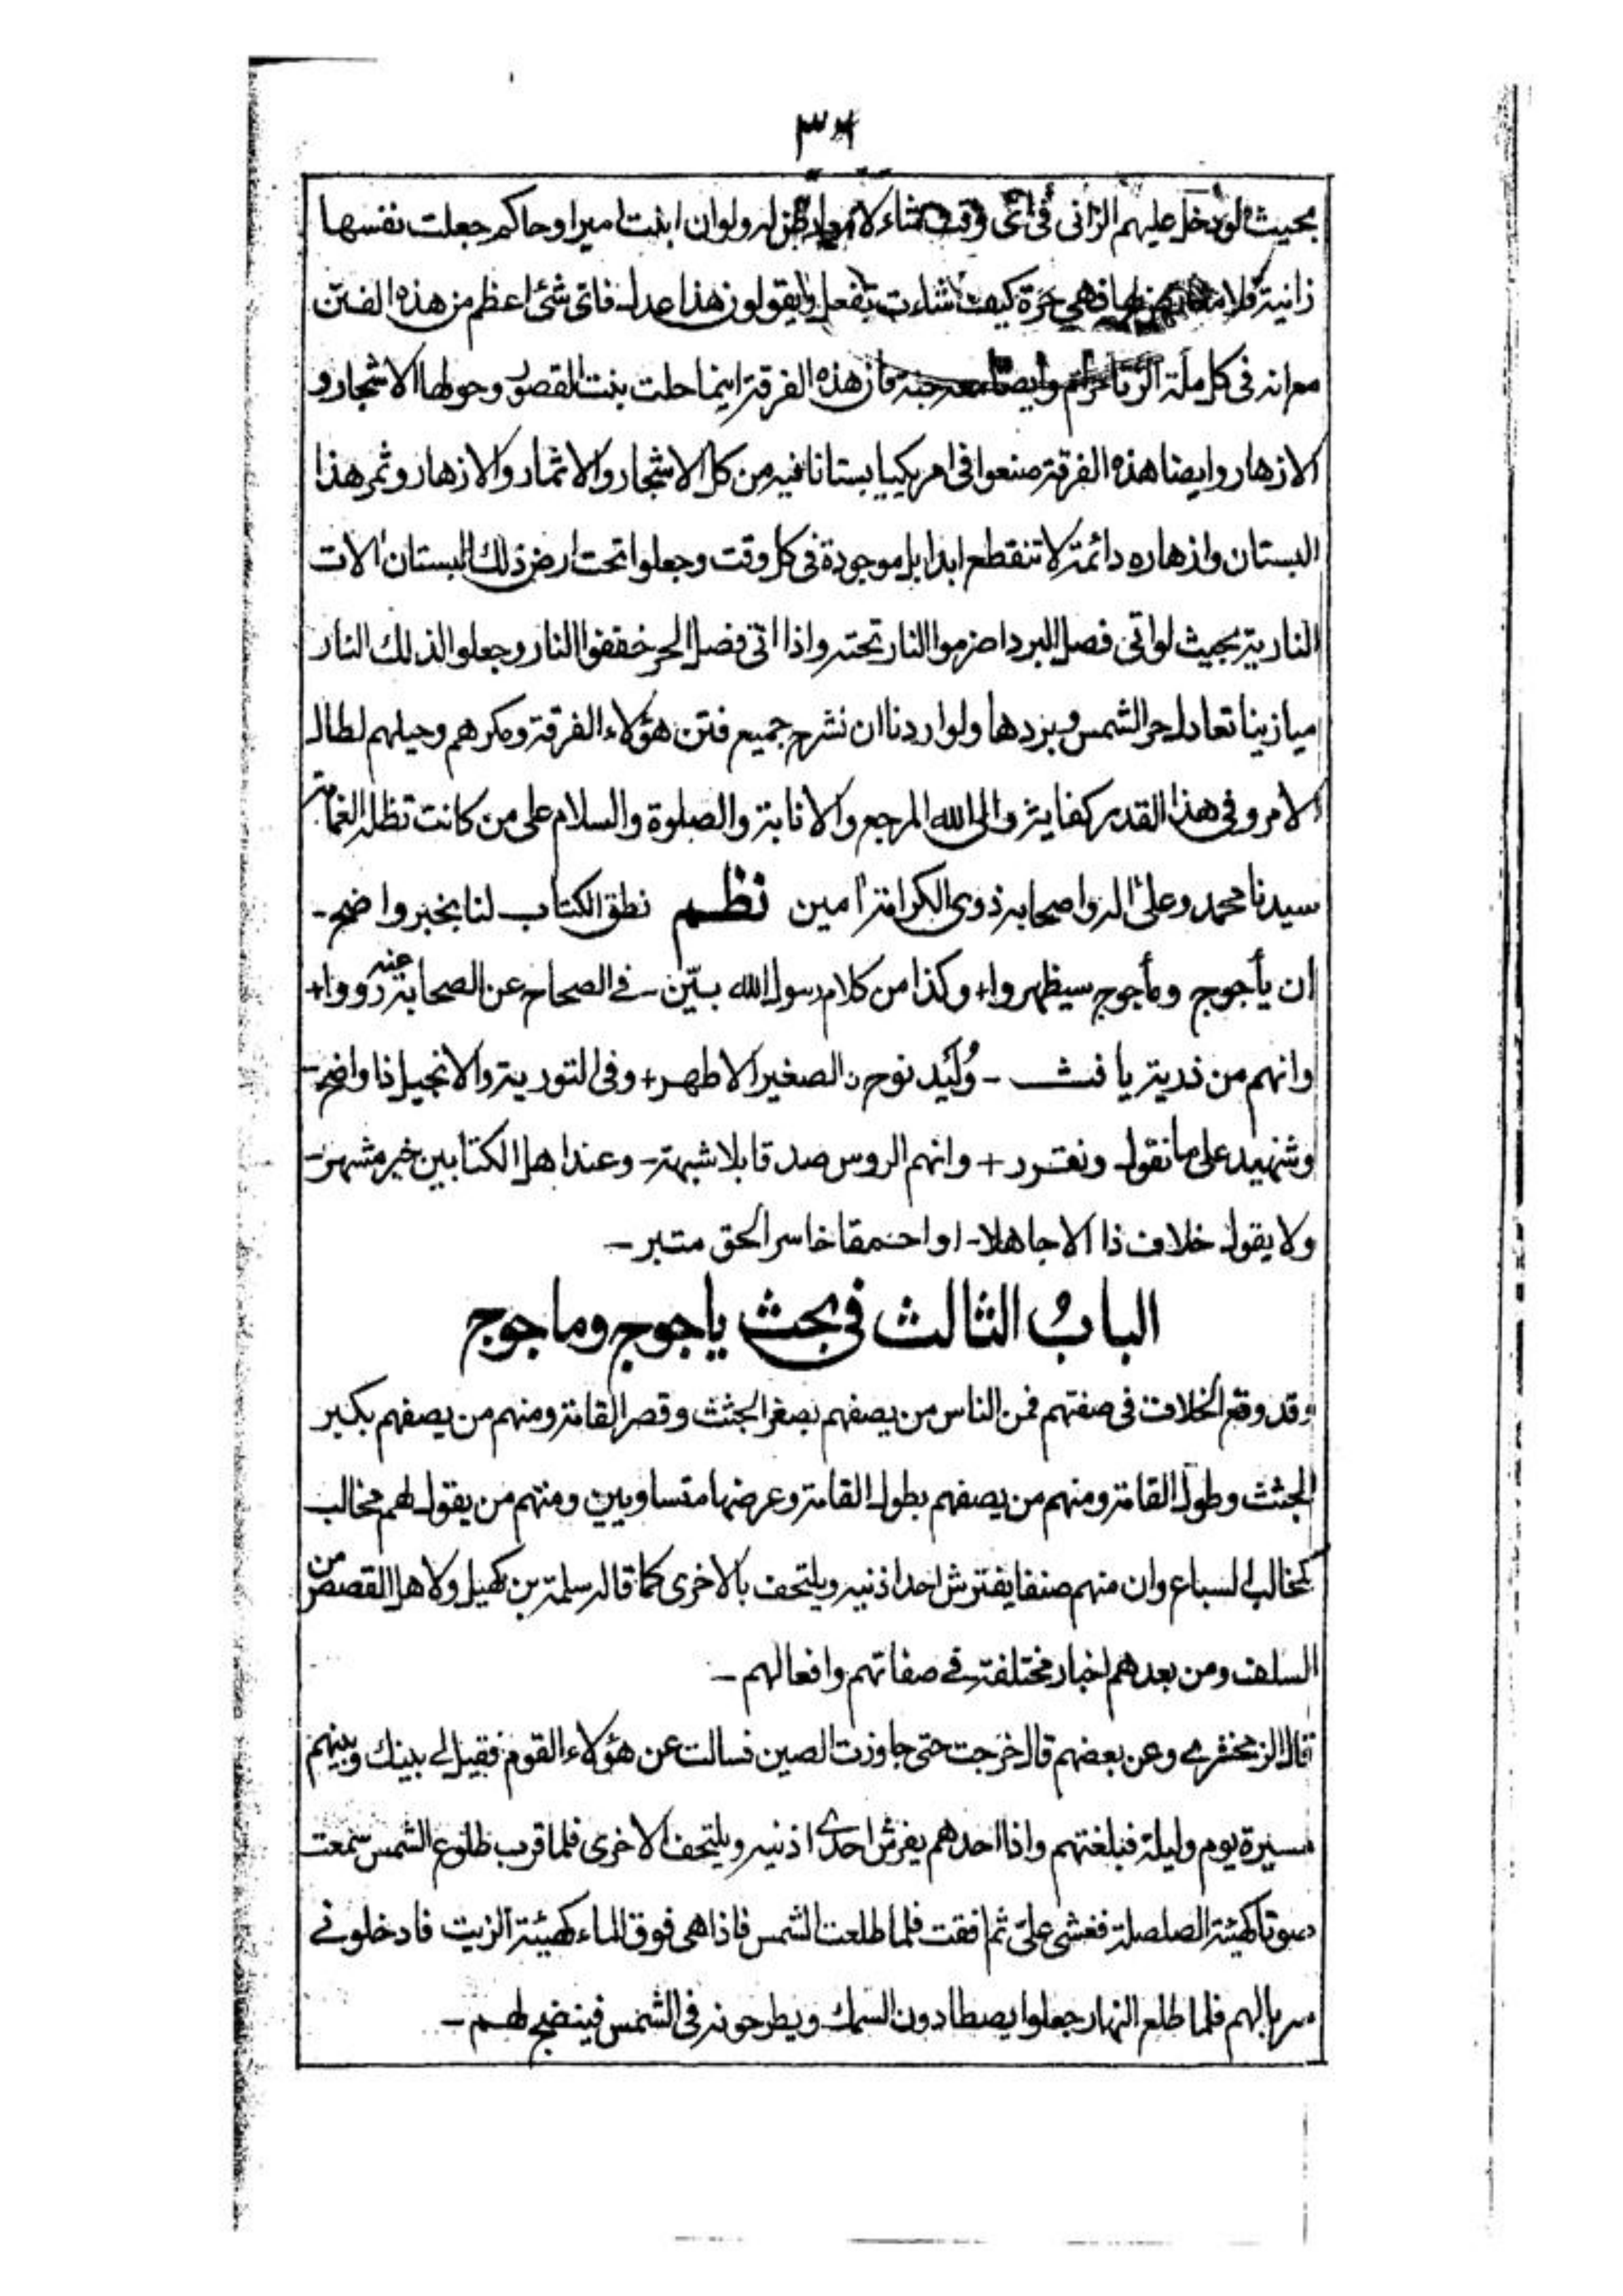 بحيث لو دخل عليهم الزانى فى اى وقت شاء لا ولو ان ابنت امير او حاكم جعلت نفسها
زانية فلا فهى حرة كيف شاءت تفعل ويقولون هذا عدل فاى شئ اعظم من هذه الفتن
مع انه فى كل ملة الزنا حرام وايضا معه جنة فان هذه الفرقة اينما حلت بنت القصور وحولها الاشجار و
الازهار وايضا هذه الفرقة صنعوا فى امريكيا بستانا فيه من كل الاشجار والاثمار والازهار وثمر هذا
البستان وازهاره دائمة لا تنقطع ابدا بل موجودة فى كل وقت وجعلوا تحت ارض ذلك البستان الات
النارية بحيث لو اتى فصل البرد اضرموا النار تحته واذا اتى فصل الحر خففوا النار وجعلوا لذلك النار
ميازينا تعادل حر الشمس وبردها ولو اردنا ان نشرح جميع فتن هؤلاء الفرقة ومكرهم وحيلهم لطال
الامر وفى هذا القدر كفاية والى الله المرجع والانابة والصلوة والسلام على من كانت تظله الغمامة
سيدنا محمد وعلى اله واصحابه ذوى الكرامة امين نظم نطق الكتاب لنا بخبر واضح ـ
ان يأجوج ومأجوج سيظهروا + وكذا من كلام رسول الله بيّن ـ فى الصحاح عن الصحابة عنه رووا +
وانهم من ذرية يافث ـ وُلَيد نوح الصغير الاطهر + وفى التورية والانجيل ذا واضح ـ
وشهيد على ما نقول ونقرر + وانهم الروس صدقا بلا شبهة ـ وعند اهل الكتابين خبر مشهر ـ
ولا يقول خلاف ذا الا جاهلا ـ او احمقا خاسر الحق متبر ـ
البابُ الثالث فى بحث ياجوج وماجوج
وقد وقع الخلاف فى صفتهم فمن الناس من يصفهم بصغر الجثث وقصر القامة ومنهم من يصفهم بكبر
الجثث وطول القامة ومنهم من يصفهم بطول القامة وعرضها متساويين ومنهم من يقول لهم مخالب
كمخالب السباع وان منهم صنفا يفترش احد اذنيه ويلتحف بالاخرى كما قاله سلمة بن كهيل ولاهل القصص من
السلف ومن بعدهم اخبار مختلفة فى صفاتهم وافعالهم ـ
قال الزمخشرى وعن بعضهم قال خرجت حتى جاوزت الصين فسالت عن هؤلاء القوم فقيل لى بينك وبينهم
مسيرة يوم وليلة فبلغتهم واذا احدهم يفرش احدى اذنيه ويلتحف الاخرى فلما قرب طلوع الشمس سمعت
صوتا كهيئة الصلصلة فغشى علىّ ثم افقت فلما طلعت الشمس فاذا هى فوق الماء كهيئة الزيت فادخلونى
سربا لهم فلما طلع النهار جعلوا يصطادون السمك ويطرحونه فى الشمس فينضج لهم ـ